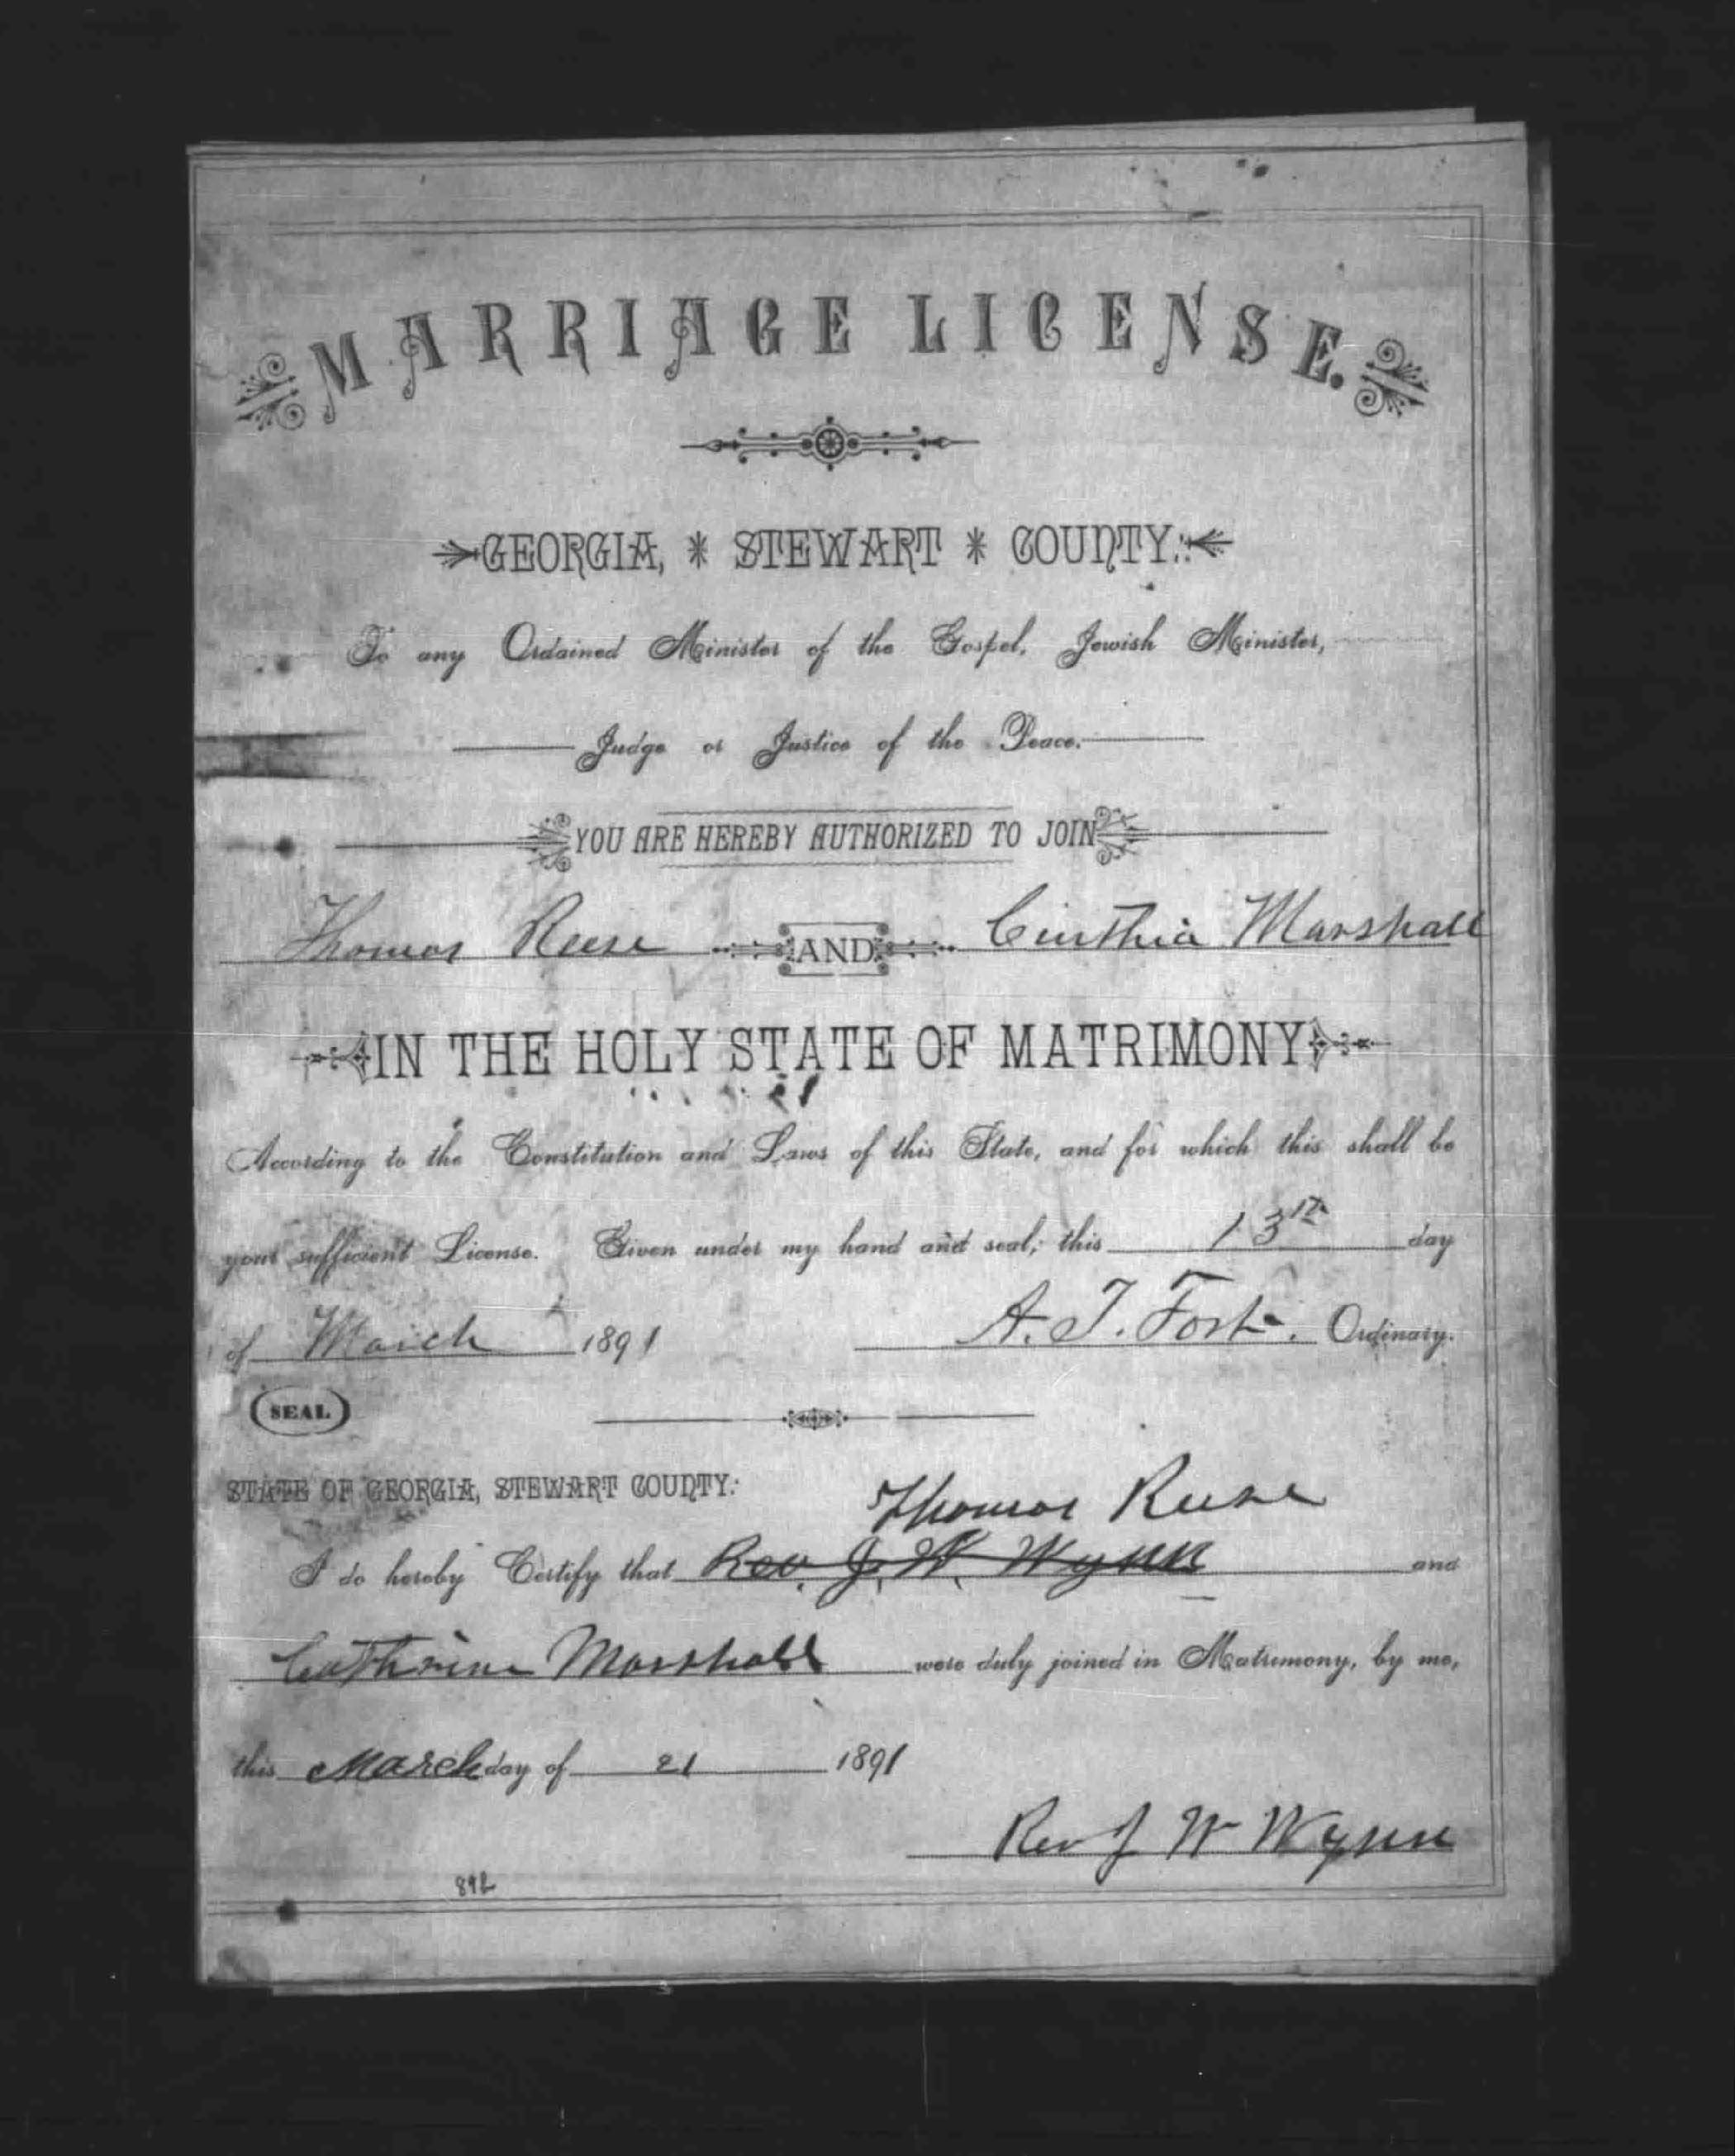 MARRIAGE LICENSE.
GEORGIA, * STEWART * COUNTY.
To any Ordained Minister of the Gospel, Jewish Minister,
Judge or Justice of the Peace.
YOU ARE HEREBY AUTHORIZED TO JOIN
Thomas Reese AND Cinthia Marshall
IN THE HOLY STATE OF MATRIMONY
According to the Constitution and Laws of this State, and for which this shall be
your sufficient License. Given under my hand and seal, this 13th day
of March 1891 A. T. Fort. Ordinary.
(SEAL)
STATE OF GEORGIA, STEWART COUNTY:
Thomas Reese
I do hereby Certify that Rev. J. W. Wynn and
Cathrine Marshall were duly joined in Matrimony, by me,
this March day of 21 1891
Rev J W Wynn